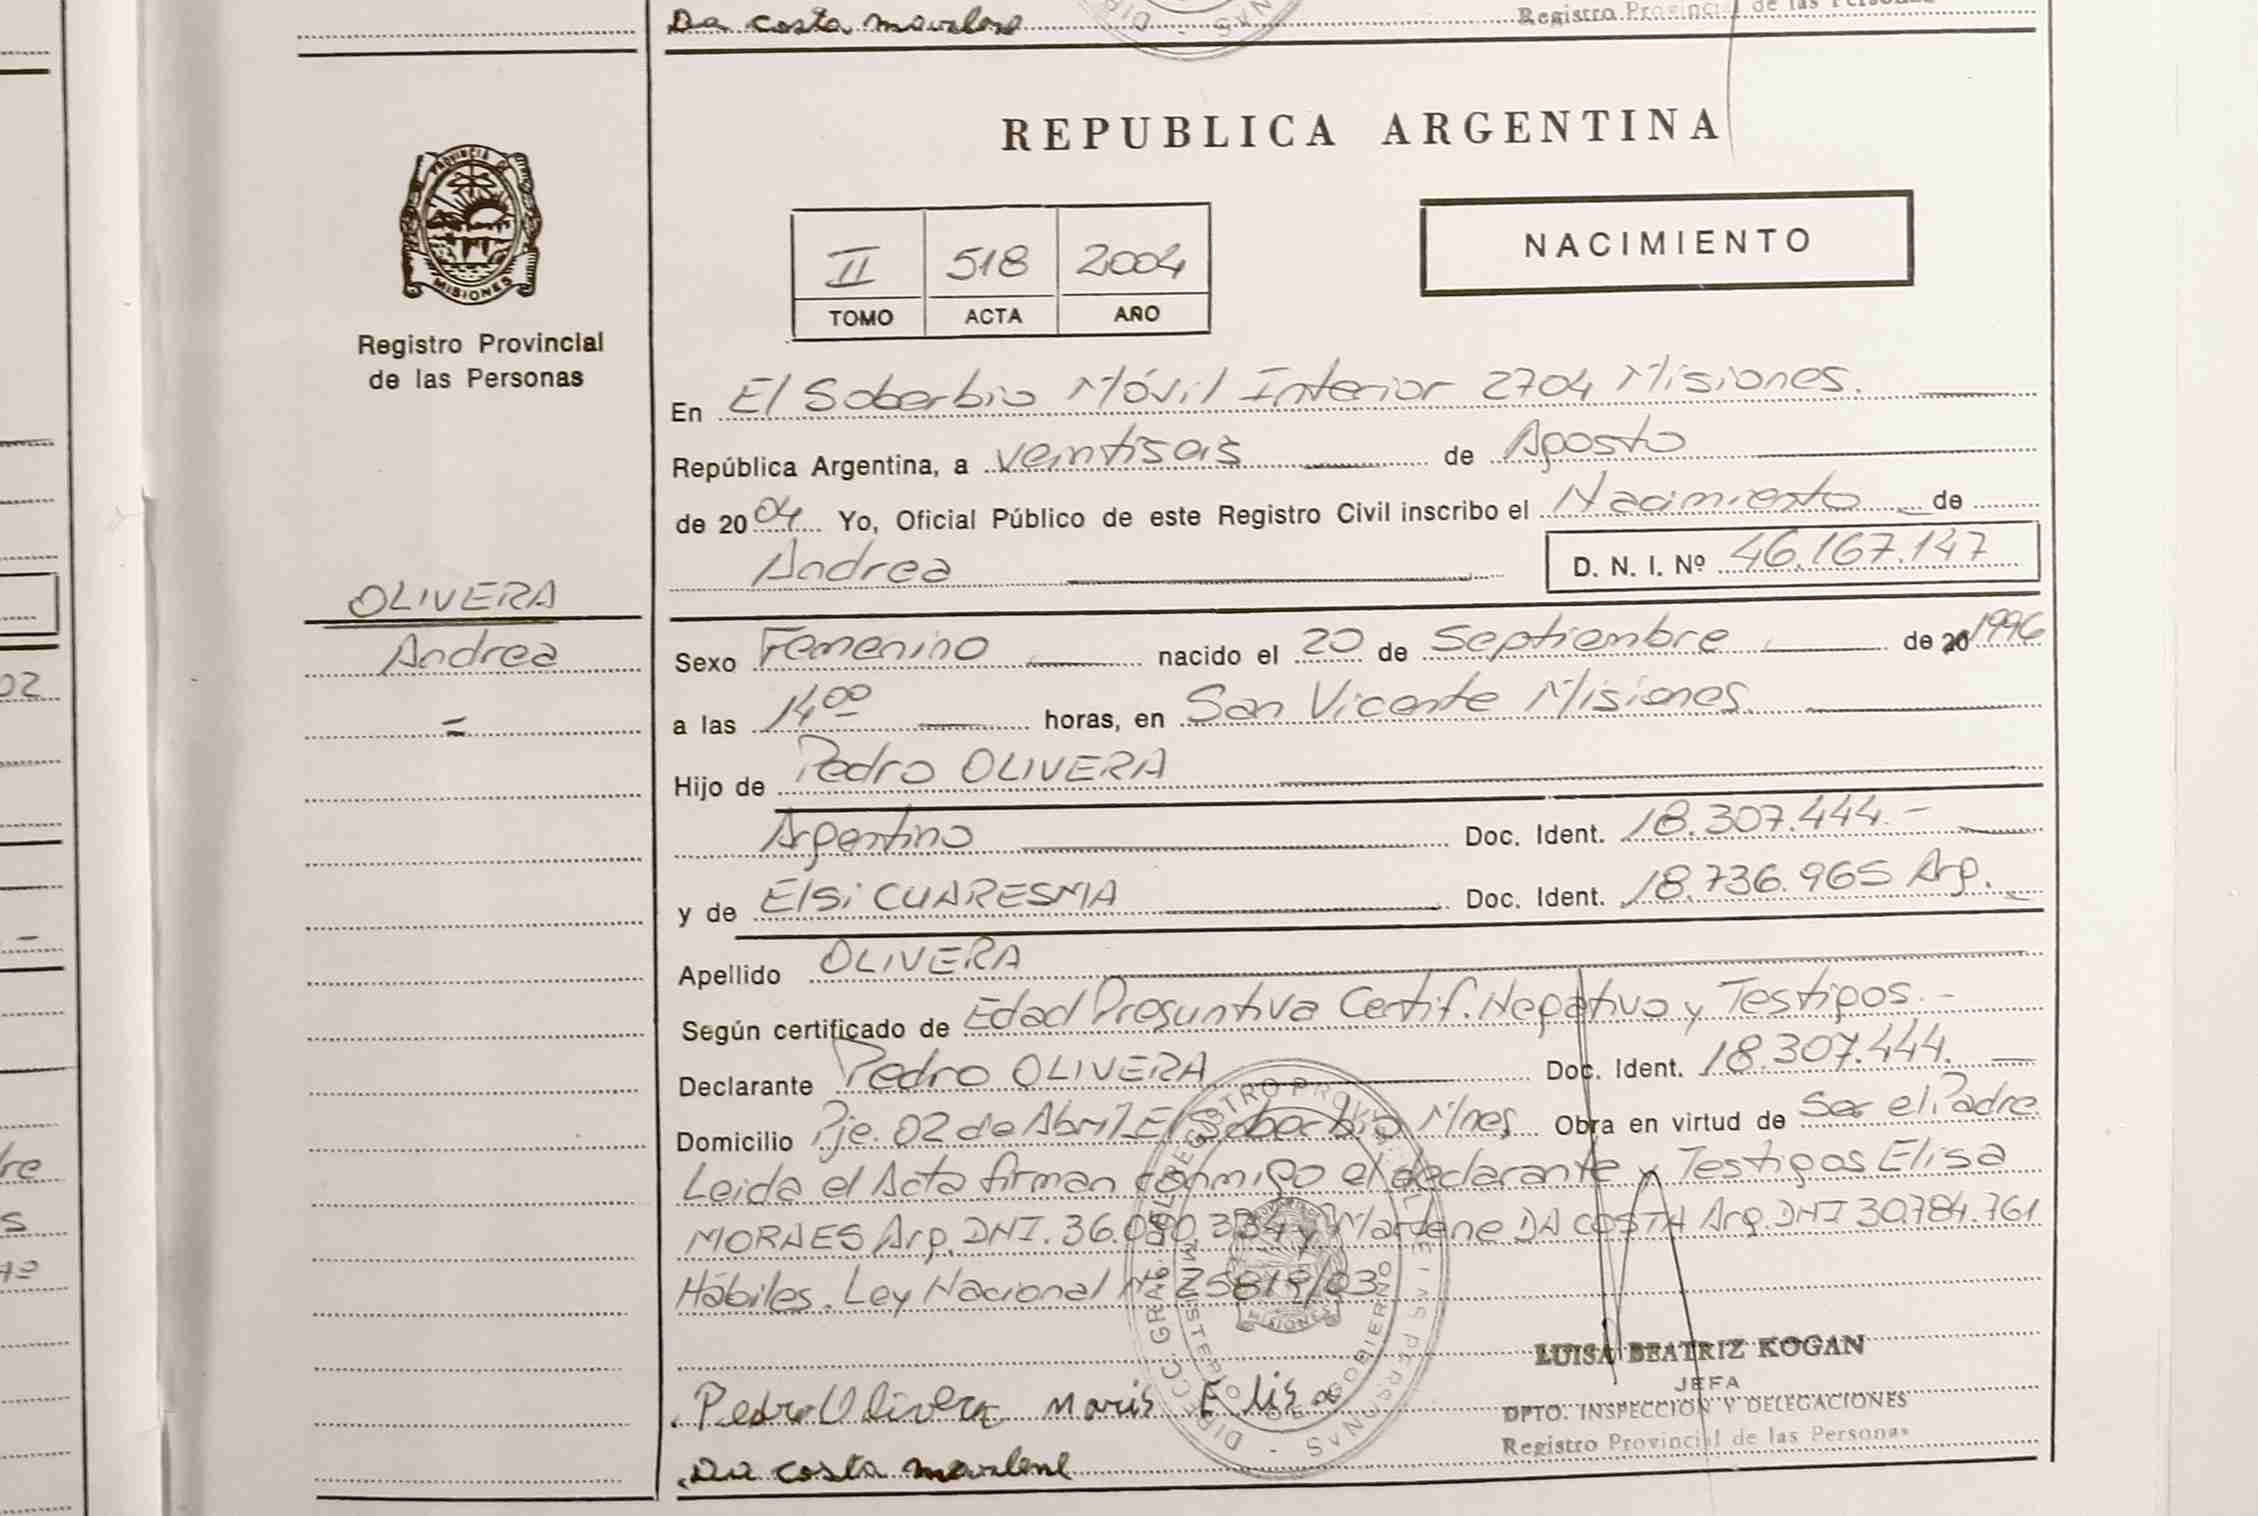 Da costa marlene
Registro Provincial de las Personas
REPUBLICA ARGENTINA
PROVINCIA DE
MISIONES
Registro Provincial
de las Personas
II 518 2004
TOMO ACTA AÑO
NACIMIENTO
En El Soberbio Móvil Interior 2704 Misiones.
República Argentina, a veintiseis de Agosto
de 2004 Yo, Oficial Público de este Registro Civil inscribo el Nacimiento de
Andrea D. N. I. Nº 46.167.147
OLIVERA
Andrea
=
Sexo Femenino nacido el 20 de Septiembre de 20 1996
a las 14 00 horas, en San Vicente Misiones.
Hijo de Pedro OLIVERA
Argentino Doc. Ident. 18.307.444.-
y de Elsi CUARESMA Doc. Ident. 18.736.965 Arg.
Apellido OLIVERA
Según certificado de Edad Presuntiva Certif. Negativo y Testigos.-
Declarante Pedro OLIVERA Doc. Ident. 18.307.444.
Domicilio Pje. 02 de Abril El Soberbio Mnes Obra en virtud de Ser el Padre.
Leida el Acta firman conmigo el declarante y Testigos Elisa
MORAES Arg. DNI. 36.090.334 y Marlene DA COSTA Arg. DNI 30.784.761
Hábiles. Ley Nacional Nº 25819/03
LUISA BEATRIZ KOGAN
JEFA
DPTO. INSPECCION Y DELEGACIONES
Registro Provincial de las Personas
Pedro Olivera Maris Elisa
Da costa marlene